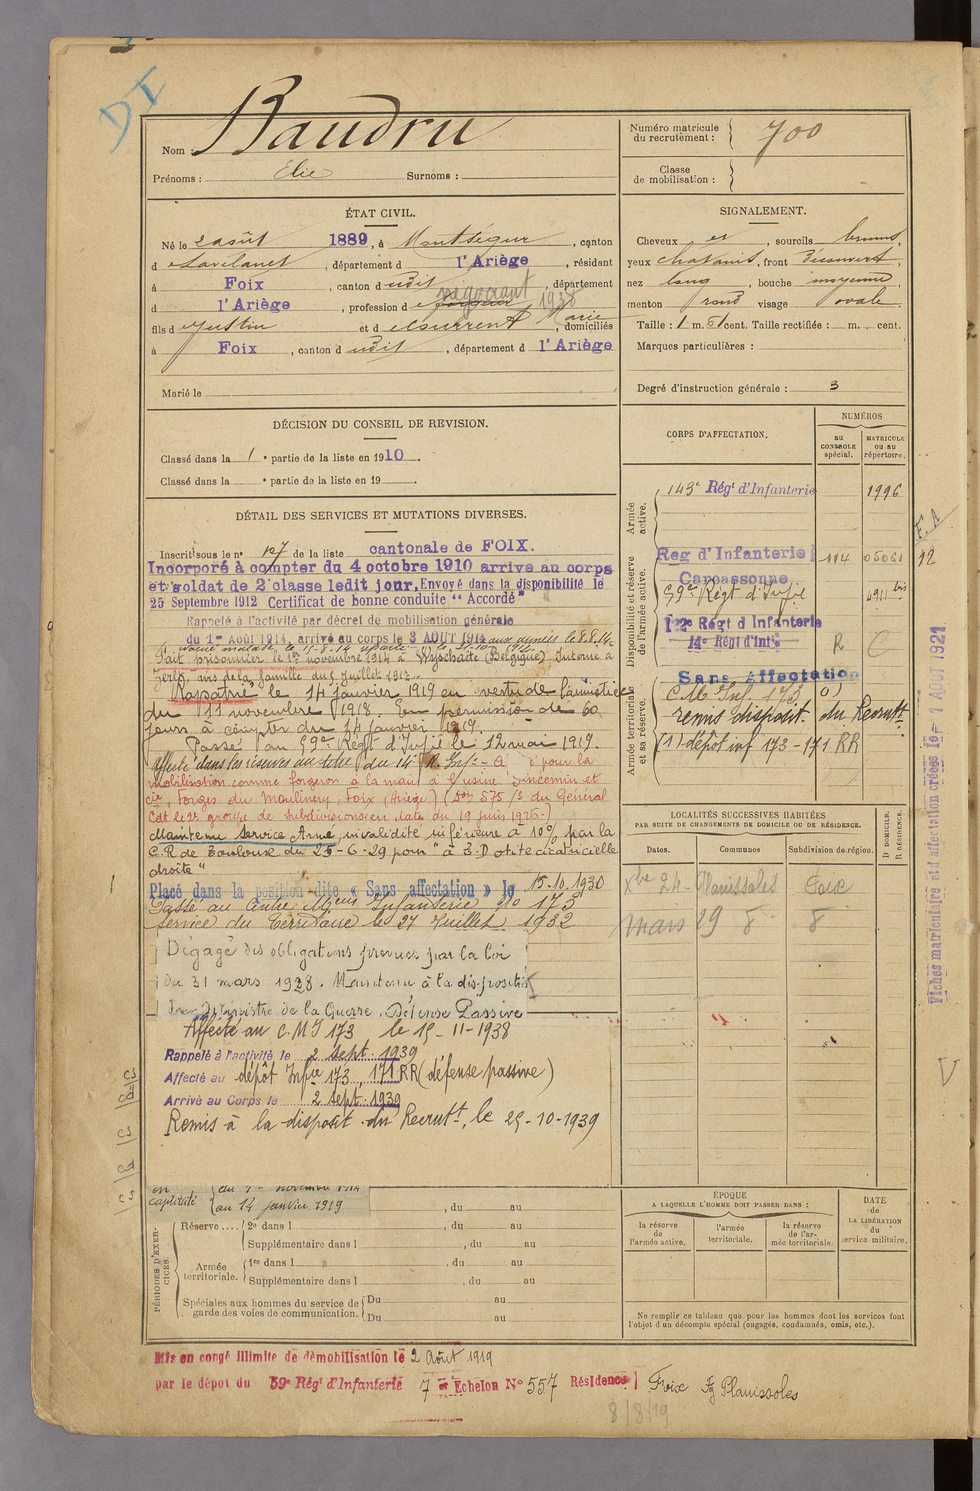 DI
Nom : Baudru
Prénoms : Elie Surnoms :
Numéro matricule du recrutement : 700
Classe de mobilisation :
ÉTAT CIVIL.
Né le 2 août 1889, à Montségur, canton
d Lavelanet, département d l'Ariège, résidant
à Foix, canton d udit, département
négociant 1938
d l'Ariège, profession de forgeron
fils d Justin et d Marie, domiciliés
à Foix, canton d udit, département d l'Ariège
Marié le
SIGNALEMENT.
Cheveux et, sourcils bruns,
yeux chatains, front découvert,
nez long, bouche moyenne,
menton rond visage ovale.
Taille : 1 m. 61 cent. Taille rectifiée : m. cent.
Marques particulières :
Degré d'instruction générale : 3
DÉCISION DU CONSEIL DE REVISION.
Classé dans la 1e partie de la liste en 1910
Classé dans la e partie de la liste en 19
DÉTAIL DES SERVICES ET MUTATIONS DIVERSES.
Inscrit sous le n° 127 de la liste cantonale de FOIX.
Incorporé à compter du 4 octobre 1910 arrive au corps
et soldat de 2e classe ledit jour, Envoyé dans la disponibilité le
25 Septembre 1912 Certificat de bonne conduite "Accordé"
Rappelé à l'activité par décret de mobilisation générale
du 1er Août 1914, arrivé au corps le 3 AOUT 1914 aux armées le 8.8.14
Evacué malade, le
Fait prisonnier le 1er novembre 1914 à (Belgique) Interné à
avis de la famille du 5 juillet 1915
Rapatrié le 14 janvier 1919 en vertu de l'armistice
du 11 novembre 1918. En permission de 60
jours à compter du 14 janvier 1919.
Passé au 59e Régt d'Infie le 12 mai 1919.
Affecté dans les réserves au titre du 14e R. Inf. - A pour la
mobilisation comme forgeron à la main à l'usine Vincemin et
Cie, Forges du Moulinery, Foix (Ariège) (Don 575/3 du Général
Cdt le 2e groupe de Subdivisions en date du 19 juin 1926.)
Maintenu Service Armé, invalidité inférieure à 10% par la
C.R de Toulouse du 25-6-29 pour "à 3.D otite cicatricielle
droite"
Placé dans la position dite « Sans affectation » le 15.10.1930
Passé au Centre Mon Infanterie No 173
Service du Territoire le 27 Juillet 1932
Dégagé des obligations prévues par la loi
du 31 mars 1928. Maintenu à la disposition
du Ministre de la Guerre. Défense Passive
Affecté au C.M.I 173 le 15-11-1938
Rappelé à l'activité le 2 Sept. 1939
Affecté au dépôt Infie 173, 171 RR (défense passive)
Arrivé au Corps le 2 Sept. 1939
Remis à la disposit. du Recrutt, le 25-10-1939
CORPS D'AFFECTATION.
NUMÉROS
au CONTROLE spécial.
MATRICULE ou au répertoire.
Armée active.
143e Régt d'Infanterie 1996
Disponibilité et réserve de l'armée active.
Reg d'Infanterie 05061 12
Carcassonne
59e Régt d'Infie 4911 bis
Régt d Infanterie
14e Régt d'Infie R C
Sans Affectation
Armée territoriale et sa réserve.
C M Inf. 173 (0)
remis disposit. du Recrutt.
(1) dépôt inf 173 - 171 RR
LOCALITÉS SUCCESSIVES HABITÉES
PAR SUITE DE CHANGEMENTS DE DOMICILE OU DE RÉSIDENCE.
Dates.
Communes
Subdivision de région.
D DOMICILE.
R RÉSIDENCE.
Xbre 24 - Planissoles Foix
Mars 29 8 8
Fiches matriculaire et d'affectation créées le 1 AOUT 1921
V
en captivité du 1er novembre 1914
au 14 janvier 1919
, du au
PÉRIODES D'EXERCICES.
Réserve.... 2e dans l , du au
Supplémentaire dans l , du au
Armée territoriale. 1re dans l , du au
Supplémentaire dans l , du au
Spéciales aux hommes du service de garde des voies de communication. Du au
Du au
ÉPOQUE
A LAQUELLE L'HOMME DOIT PASSER DANS :
la réserve de l'armée active.
l'armée territoriale.
la réserve de l'armée territoriale.
DATE de LA LIBÉRATION du service militaire.
Ne remplir ce tableau que pour les hommes dont les services font
l'objet d'un décompte spécial (engagés, condamnés, omis, etc.).
Mis en congé illimité de démobilisation le 2 Août 1919
par le dépot du 59e Régt d'Infanterie 7e Echelon N° 557 Résidence Foix Planissoles
8/8/19